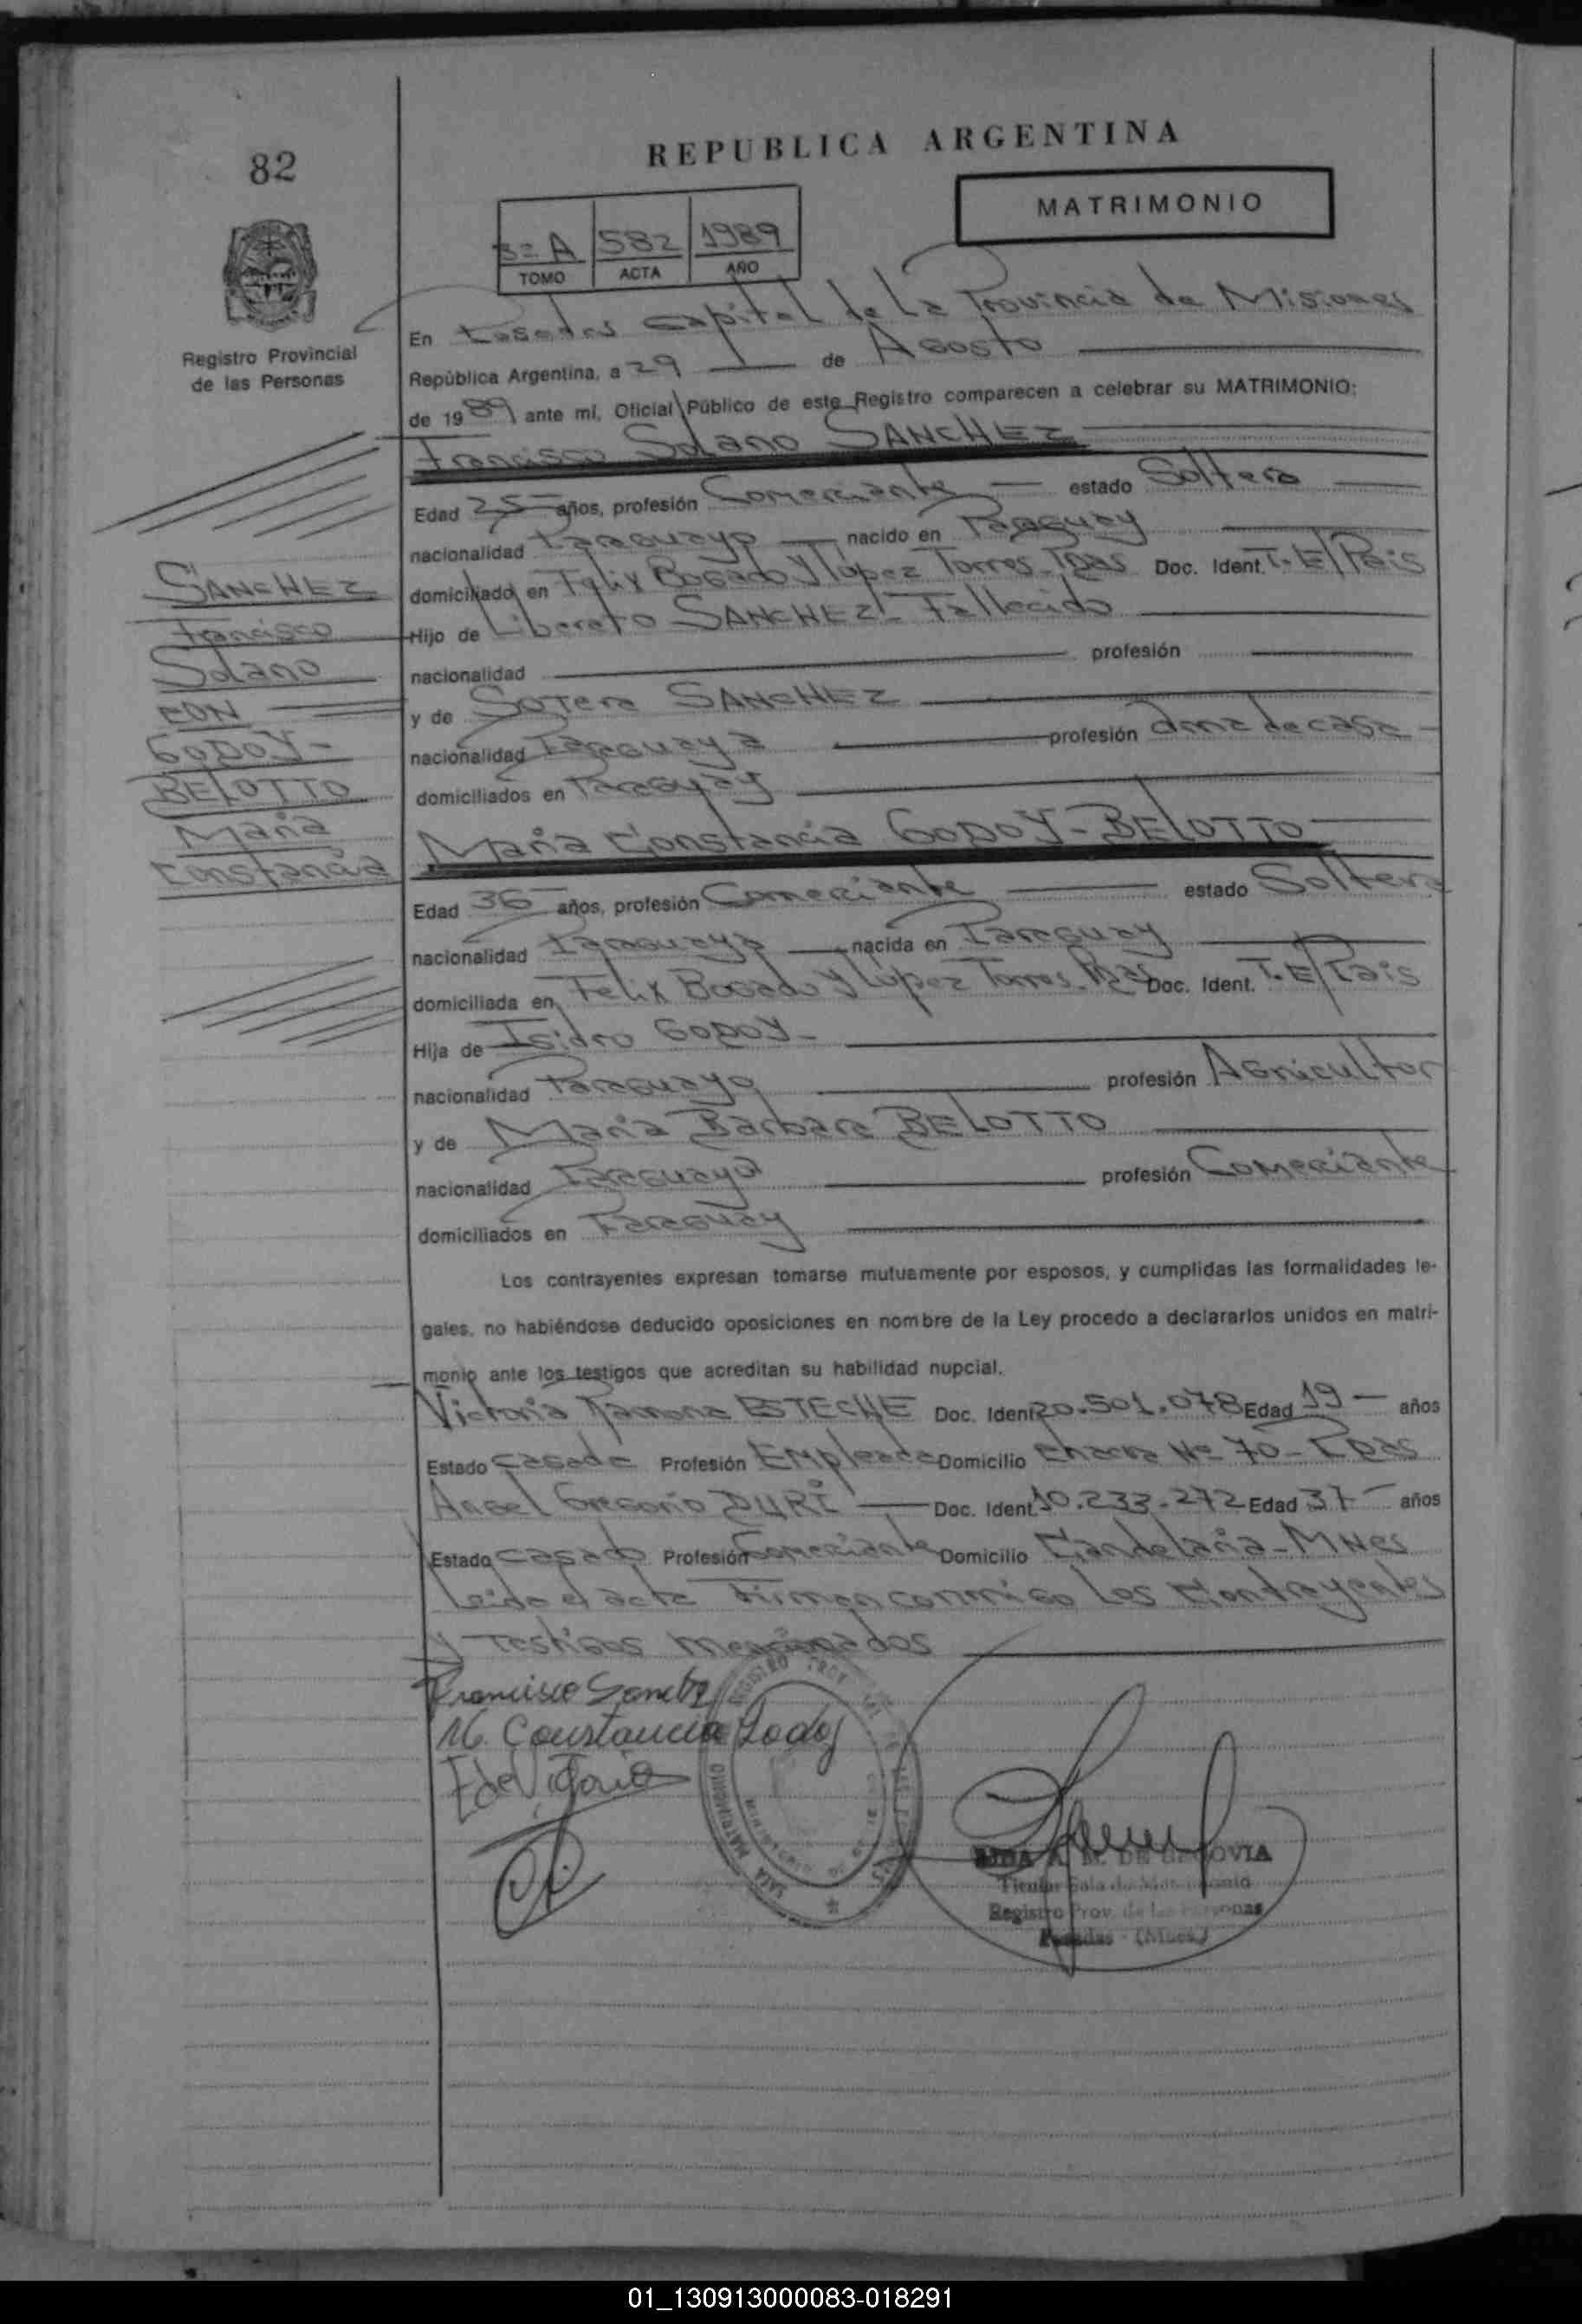 82
REPUBLICA ARGENTINA
MATRIMONIO
3º A 582 1989
TOMO ACTA AÑO
Registro Provincial
de las Personas
En Posadas capital de La Provincia de Misiones
República Argentina, a 29 de Agosto
de 1989 ante mí, Oficial Público de este Registro comparecen a celebrar su MATRIMONIO:
Francisco Solano SANCHEZ
Edad 25 años, profesión Comerciante estado Soltero
nacionalidad Paraguayo nacido en Paraguay
domiciliado en Felix Bogado y López Torres-Pdas Doc. Ident. T.E/Pais
Hijo de Liberato SANCHEZ - Fallecido
nacionalidad profesión
y de Sotera SANCHEZ
nacionalidad Paraguaya profesión ama de casa
domiciliados en Paraguay
SANCHEZ
Francisco
Solano
CON
GODOY-
BELOTTO
Maria
Constancia
Maria Constancia GODOY-BELOTTO
Edad 36 años, profesión Comerciante estado Soltera
nacionalidad Paraguaya nacida en Paraguay
domiciliada en Felix Bogado y López Torres-Pdas Doc. Ident. T.E/Pais
Hija de Isidro GODOY-
nacionalidad Paraguayo profesión Agricultor
y de Maria Barbara BELOTTO
nacionalidad Paraguaya profesión Comerciante
domiciliados en Paraguay
Los contrayentes expresan tomarse mutuamente por esposos, y cumplidas las formalidades le-
gales, no habiéndose deducido oposiciones en nombre de la Ley procedo a declararlos unidos en matri-
monio ante los testigos que acreditan su habilidad nupcial.
Victoria Ramona ESTECHE Doc. Ident 20.501.078 Edad 19 años
Estado casada Profesión Empleada Domicilio Chacra Nº 70-Pdas
Angel Gregorio DURÉ Doc. Ident. 10.233.272 Edad 37 años
Estado casado Profesión Comerciante Domicilio Candelaria-Mnes
Leida el acta Firman conmigo Los Contrayentes
y Testigos mencionados
Francisco Sanchez
M. Constancia Godoy
REGISTRO
SALA MATRIMONIO
A. M. DE SEGOVIA
Titular Sala de Matrimonio
Registro Prov. de las Personas
Posadas - (Mnes.)
01_130913000083-018291